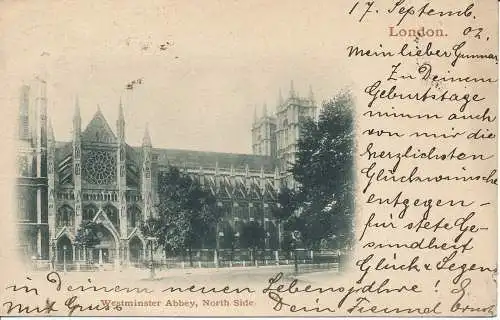 17. Septemb. 02.
London.
Mein lieber Gunnar,
Zu Deinem
Geburtstage
nimm auch
von mir die
herzlichsten
Glückwünsche
entgegen -
für stete Ge-
sundheit
Glück & Segen
in Deinem neuen Lebensjahre!
Mit Gruss Dein Freund
Westminster Abbey, North Side.